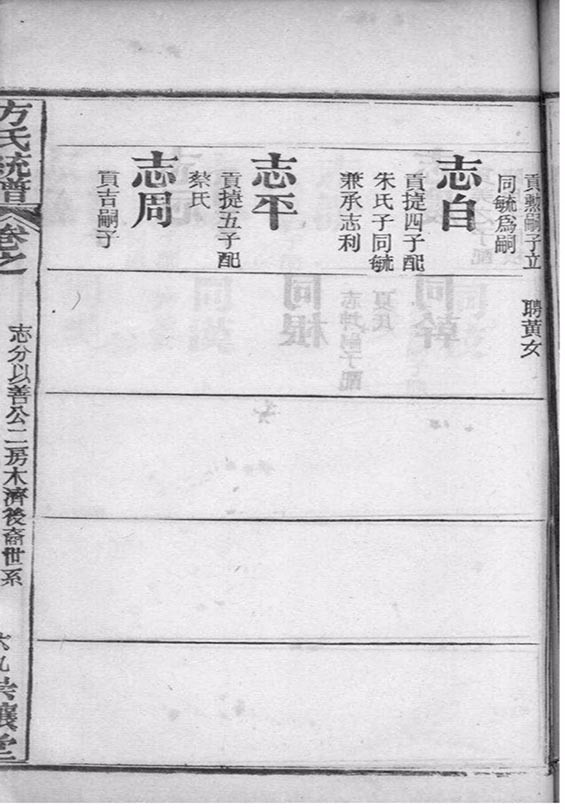 貢勲嗣子立
同毓爲嗣
聘黃女
志自
貢捷四子配
朱氏子同毓
兼承志利
志平
貢捷五子配
蔡氏
志周
貢吉嗣子
方氏統譜
卷之
志分以善公二房木濟後裔世系
六九